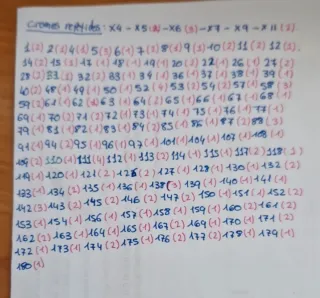 Cromos repetidos: X4 - X5(2) - X6(3) - X7 - X9 - X11(2).
1(2) 2(2) 4(1) 5(3) 6(1) 7(2) 8(1) 9(3) 10(2) 11(2) 12(2)
14(2) 15(2) 17(1) 18(1) 19(1) 20(2) 22(1) 26(1) 27(2)
28(2) 31(1) 32(2) 33(1) 34(1) 36(1) 37(1) 38(1) 39(1)
40(2) 48(1) 49(1) 50(1) 52(4) 53(2) 54(2) 57(1) 58(3)
59(2) 61(1) 62(2) 63(1) 64(2) 65(1) 66(1) 67(1) 68(1)
69(1) 70(2) 71(2) 72(1) 73(1) 74(1) 75(1) 76(1) 77(1)
79(1) 81(1) 82(1) 83(1) 84(2) 85(1) 86(1) 87(2) 88(3)
91(1) 94(2) 95(1) 96(1) 97(1) 101(1) 104(1) 107(1) 108(1)
109(2) 110(1) 111(4) 112(1) 113(2) 114(1) 115(1) 117(2) 118(1)
119(1) 120(1) 121(2) 126(2) 127(1) 128(1) 130(1) 132(2)
133(1) 134(2) 135(1) 136(1) 138(3) 139(1) 140(1) 141(1)
142(3) 143(2) 145(2) 146(2) 147(2) 150(1) 151(1) 152(2)
153(1) 154(1) 156(1) 157(1) 158(1) 159(1) 160(2) 161(2)
162(2) 163(1) 164(1) 165(1) 167(2) 169(1) 170(1) 171(2)
172(1) 173(1) 174(2) 175(1) 176(2) 177(2) 178(1) 179(1)
180(1)